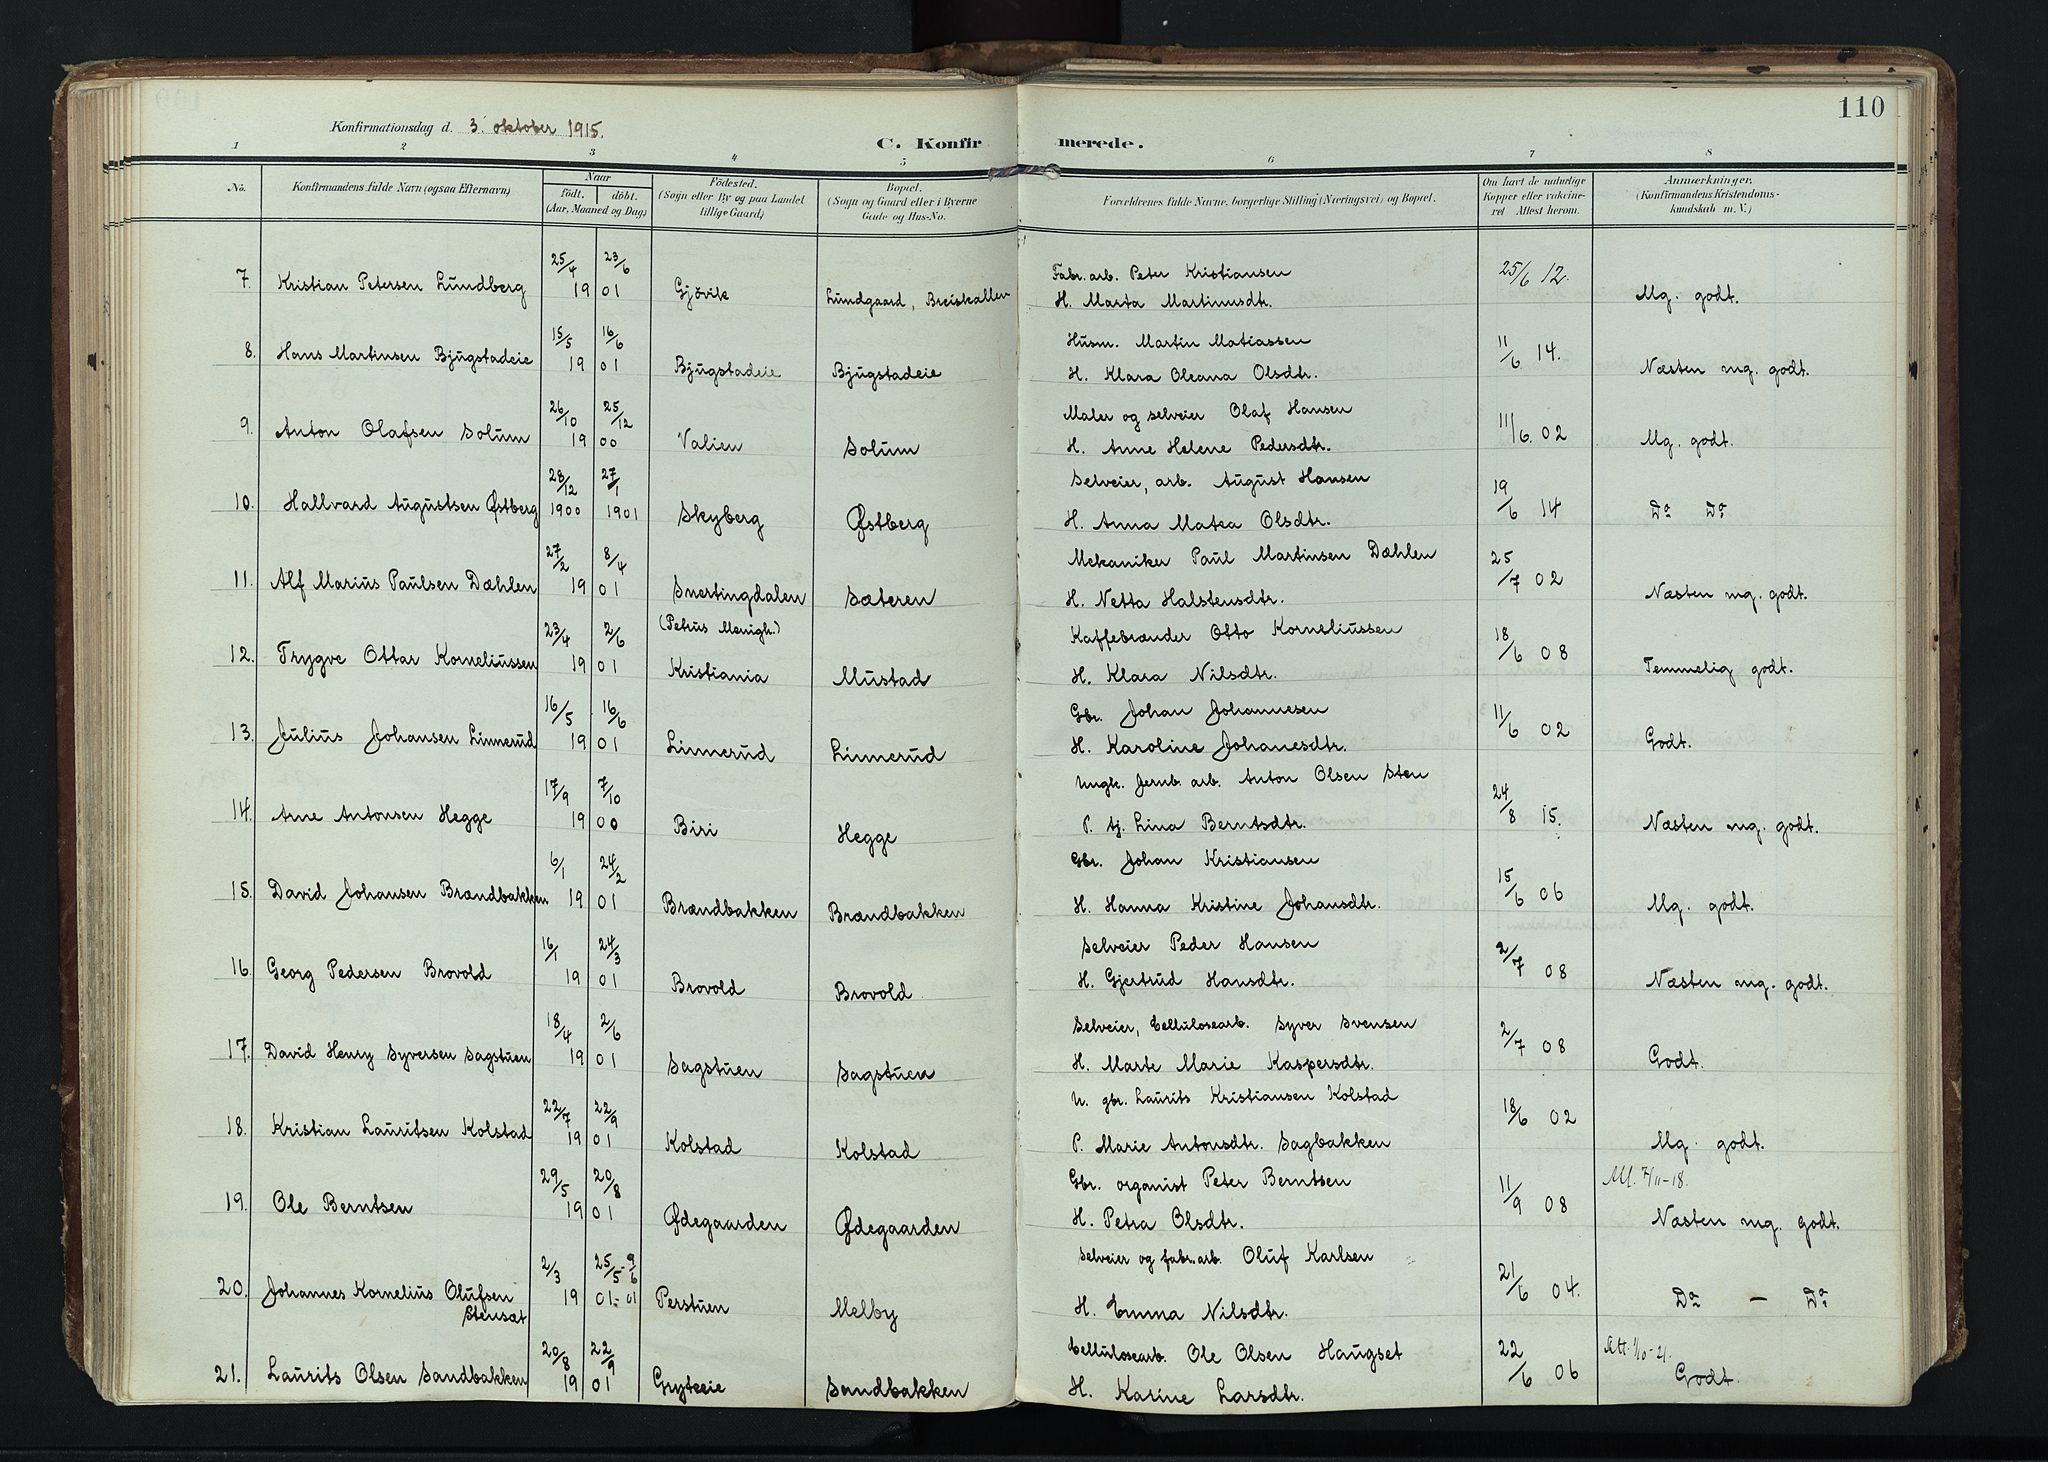 110
Konfirmationsdag d. 3. oktober 1915.
C. Konfir merede.
1 2 3 4 5 6 7 8
No. Konfirmandens fulde Navn (ogsaa Efternavn) Naar født, døbt. (Aar, Maaned og Dag) Fødested. (Sogn eller By og paa Landet tillige Gaard) Bopæl. (Sogn og Gaard eller i Byerne Gade og Hus-No. Forældrenes fulde Navne, borgerlige Stilling (Næringsvei) og Bopæl. Om havt de naturlige Kopper eller vakcineret Attest herom. Anmærkninger. (Konfirmandens Kristendomskundskab m. V.)
7. Kristian Petersen Lundberg 25/4 1901 23/6 Gjövik Lundgaard, Breiskallen Fabr. arb. Peter Kristiansen 25/6 12.
H. Marta Martinusdtr. Mg. godt.
8. Hans Martinsen Bjugstadeie 15/5 1901 16/6 Bjugstadeie Bjugstadeie Husm. Martin Matiassen 11/6 14.
H. Klara Oleana Olsdtr. Næsten mg. godt.
9. Anton Olafsen Solum 26/10 1900 25/12 Valien Solum Maler og selveier Olaf Hansen 11/6. 02
H. Anne Helene Pedersdtr. Mg. godt.
10. Hallvard Augustsen Østberg 28/12 1900 27/1 1901 Skyberg Østberg Selveier, arb. August Hansen 19/6 14
H. Anna Matea Olsdtr. Do Do
11. Alf Marius Paulsen Dæhlen 27/2 1901 8/4 Snertingdalen Sæteren Mekaniker Paul Martinsen Dæhlen 25/7 02
H. Netta Halstensdtr. Næsten mg. godt.
12. Trygve Ottar Korneliussen 23/4 1901 2/6 (Petrus Menigh.) Kristiania Mustad Kaffebrænder Otto Korneliussen 18/6 08
H. Klara Nilsdtr. Temmelig godt.
13. Julius Johansen Linnerud 16/5 1901 16/6 Linnerud Linnerud Gbr. Johan Johannesen 11/6 02
H. Karoline Johanesdtr. Godt.
14. Arne Antonsen Hegge 17/9 1900 7/10 Biri Hegge Ungk. Jernb. arb. Anton Olsen Sten 24/8 15.
P. tj. Lina Berntsdtr. Næsten mg. godt.
15. David Johansen Brændbakken 6/1 1901 24/2 Brændbakken Brændbakken Gbr. Johan Kristiansen 15/6 06
H. Hanna Kristine Johansdtr. Mg. godt.
16. Georg Pedersen Brovold 16/1 1901 24/3 Brovold Brovold Selveier Peder Hansen 2/7 08
H. Gjertrud Hansdtr. Næsten mg. godt.
17. David Henry Syversen Sagstuen 18/4 1901 2/6 Sagstuen Sagstuen Selveier, Cellulosearb. Syver Svensen 2/7 08
H. Marte Marie Kaspersdtr. Godt.
18. Kristian Lauritsen Kolstad 22/7 1901 22/9 Kolstad Kolstad U. gbr. Laurits Kristiansen Kolstad 18/6 02
P. Marie Antonsdtr. Sagbakken Mg. godt.
19. Ole Berntsen 29/5 1901 20/8 Ødegaarden Ødegaarden Gbr. organist Peter Berntsen 11/9 08 7/11-18.
H. Petra Olsdtr. Næsten mg. godt.
20. Johannes Kornelius Olufsen Stensæt 2/3 1901 25/5 - 9/6 01 Perstuen Melby Selveier og fabr. arb. Oluf Karlsen 21/6 04.
H. Emma Nilsdtr. Do - Do
21. Laurits Olsen Sandbakken 20/8 1901 22/9 Gryteeie Sandbakken Cellulosearb. Ole Olsen Haugset 22/6 06 Att.
H. Karine Larsdtr. Godt.